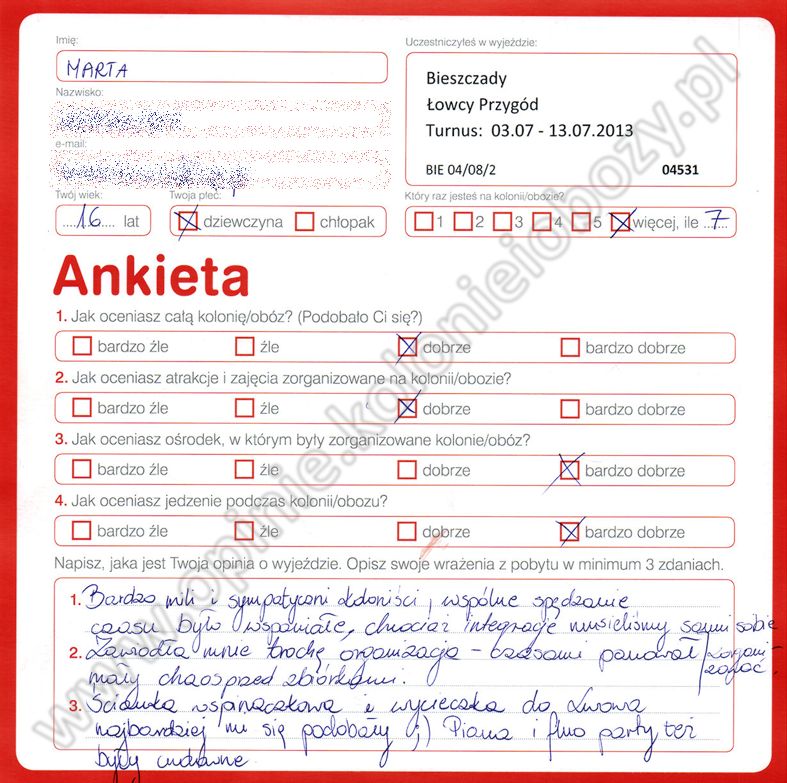 Imię:
MARTA
Nazwisko:
e-mail:
Twój wiek:
....16.... lat
Twoja płeć:
dziewczyna chłopak
Uczestniczyłeś w wyjeździe:
Bieszczady
Łowcy Przygód
Turnus: 03.07 - 13.07.2013
BIE 04/08/2 04531
Który raz jesteś na kolonii/obozie?
1 2 3 4 5 więcej, ile ...7...
Ankieta
1. Jak oceniasz całą kolonię/obóz? (Podobało Ci się?)
bardzo źle źle dobrze bardzo dobrze
2. Jak oceniasz atrakcje i zajęcia zorganizowane na kolonii/obozie?
bardzo źle źle dobrze bardzo dobrze
3. Jak oceniasz ośrodek, w którym były zorganizowane kolonie/obóz?
bardzo źle źle dobrze bardzo dobrze
4. Jak oceniasz jedzenie podczas kolonii/obozu?
bardzo źle źle dobrze bardzo dobrze
Napisz, jaka jest Twoja opinia o wyjeździe. Opisz swoje wrażenia z pobytu w minimum 3 zdaniach.
1. Bardzo mili i sympatyczni koloniści, wspólne spędzanie
czasu było wspaniałe, chociaż integrację musieliśmy sami sobie
zorganizować.
2. Zawiodła mnie trochę organizacja - czasami panował
mały chaos przed zbiórkami.
3. Ścianka wspinaczkowa i wycieczka do Lwowa
najbardziej mi się podobały ;) Piana i fluo party też
były cudowne.
www.opinie.kolonieiobozy.pl